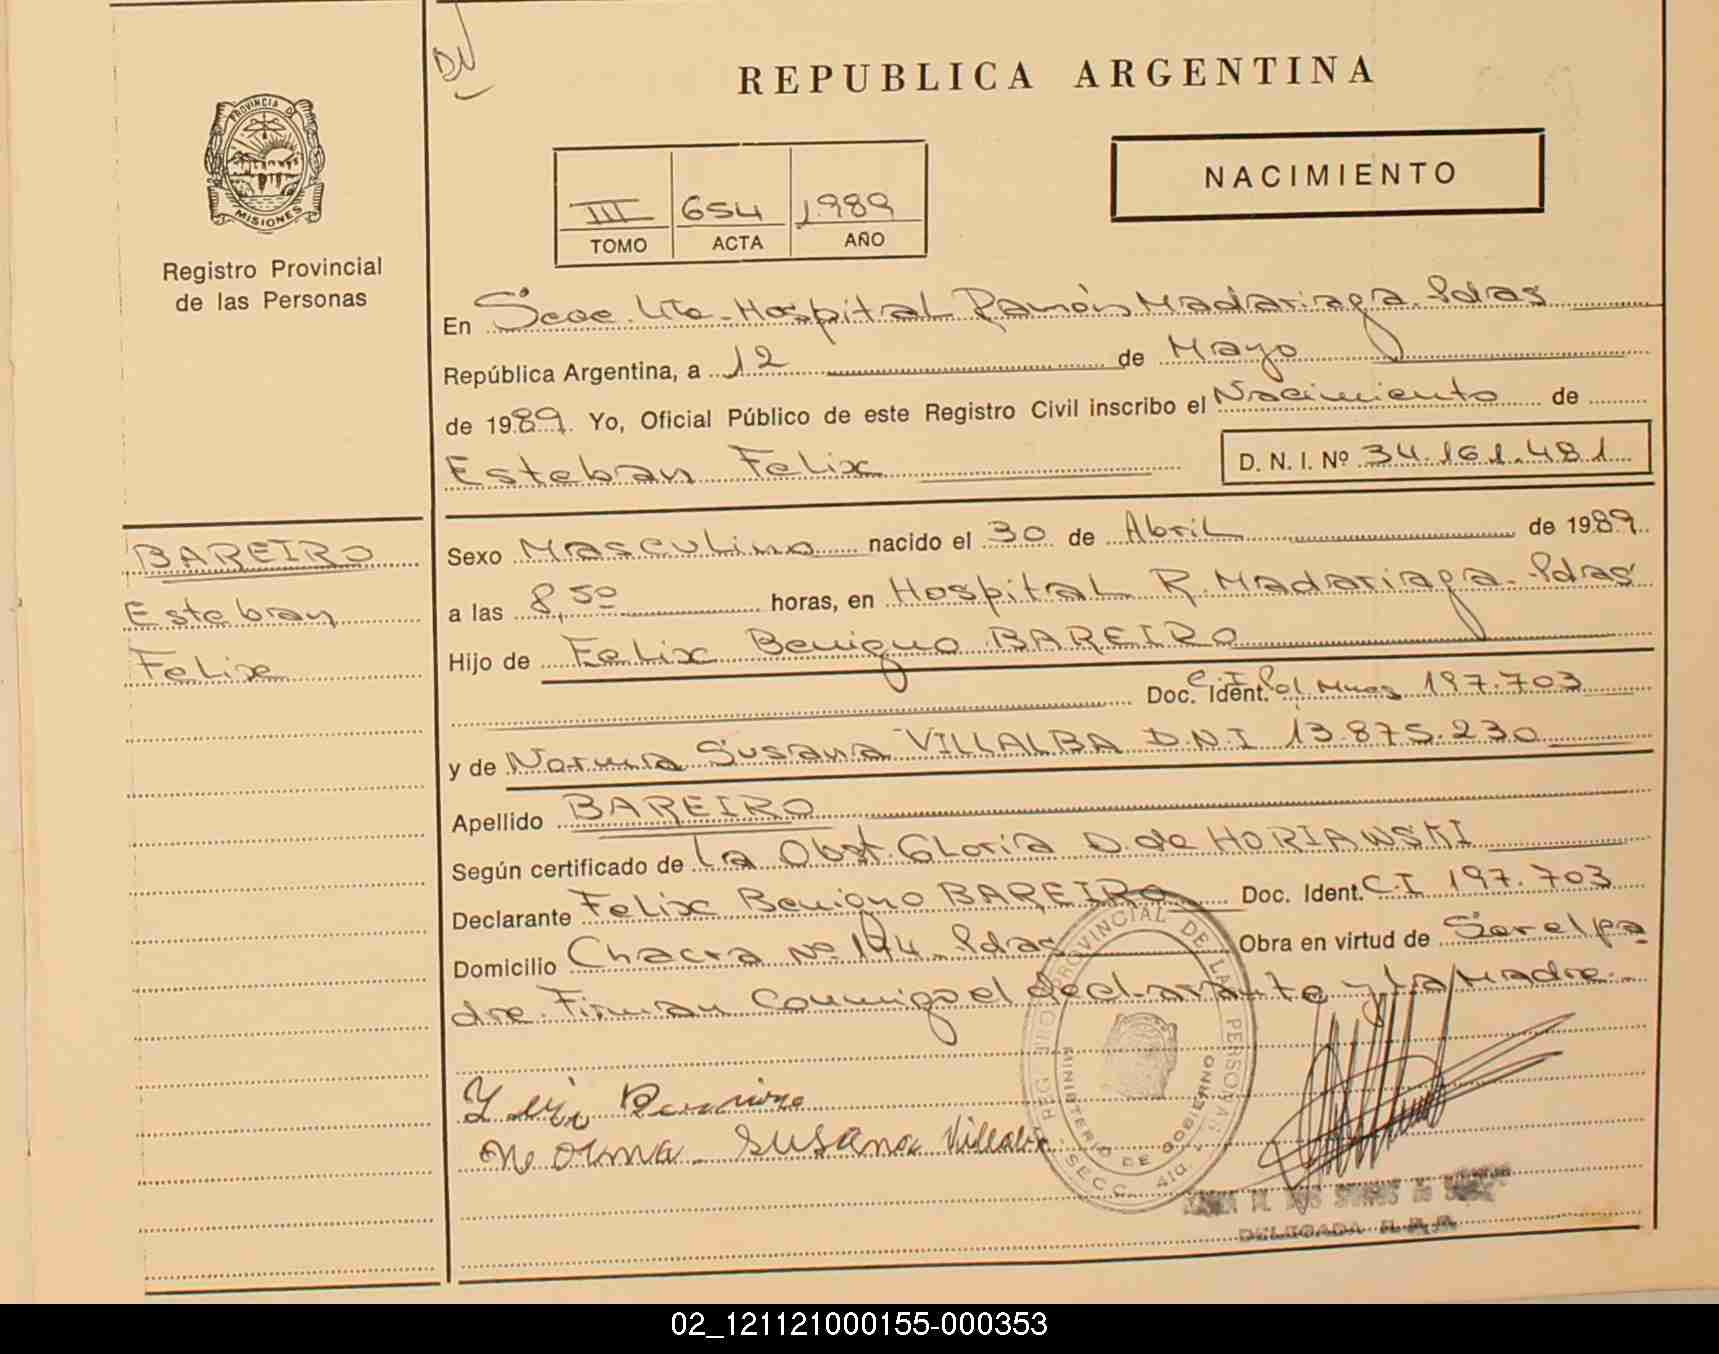 DV
REPUBLICA ARGENTINA
PROVINCIA D MISIONES
Registro Provincial
de las Personas
III 654 1989
TOMO ACTA AÑO
NACIMIENTO
En Secc. 4ta - Hospital Ramón Madariaga. Pdas
República Argentina, a 12 de Mayo
de 1989. Yo, Oficial Público de este Registro Civil inscribo el Nacimiento de
Esteban Felix D. N. I. Nº 34.161.481
BAREIRO
Esteban
Felix
Sexo Masculino nacido el 30 de Abril de 1989.
a las 8,50 horas, en Hospital R. Madariaga - Pdas
Hijo de Felix Benigno BAREIRO
Doc. Ident. C.I Pol Mnes 197.703
y de Norma Susana VILLALBA D.N.I 13.875.230
Apellido BAREIRO
Según certificado de La Obst. Gloria D. de HORIANSKI
Declarante Felix Benigno BAREIRO Doc. Ident. C.I 197.703
Domicilio Chacra Nº 194. Pdas Obra en virtud de Ser el pa
dre. Firman Conmigo el declarante y La Madre.
REG PROVINCIAL DE LA PERSONA
MINISTERIO DE GOBIERNO
SECC. 4ta.
Norma Susana Villalba
DELEGADA
02_121121000155-000353